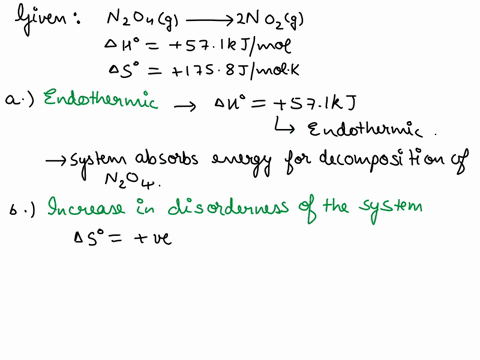 Given: N₂O₄(g) ⟶ 2NO₂(g)
ΔH° = +57.1kJ/mol
ΔS° = +175.8J/mol.K
a.) Endothermic → ΔH° = +57.1kJ
↳ Endothermic.
→ System absorbs energy for decomposition of
N₂O₄.
b.) Increase in disorderness of the system
ΔS° = +ve